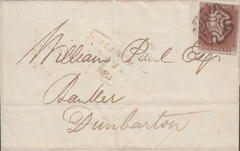 William Paul Esq
Banker
Dunbarton